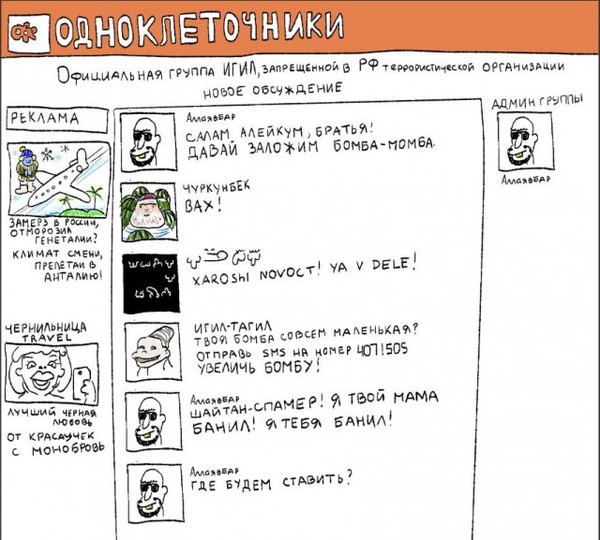 ОДНОКЛЕТОЧНИКИ
ОФИЦИАЛЬНАЯ ГРУППА ИГИЛ, ЗАПРЕЩЕННОЙ В РФ ТЕРРОРИСТИЧЕСКОЙ ОРГАНИЗАЦИИ
НОВОЕ ОБСУЖДЕНИЕ
РЕКЛАМА
ЗАМЕРЗ В РОССИИ,
ОТМОРОЗИЛ
ГЕНЕТАЛИИ?
КЛИМАТ СМЕНИ,
ПРЕЛЕТАЙ В
АНТАЛИЮ!
ЧЕРНИЛЬНИЦА
TRAVEL
ЛУЧШИЙ ЧЕРНАЯ
ЛЮБОВЬ
ОТ КРАСАУЧЕК
С МОНОБРОВЬ
АЛЛАЯВБАР
САЛАМ, АЛЕЙКУМ, БРАТЬЯ!
ДАВАЙ ЗАЛОЖИМ БОМБА-МОМБА.
ЧУРКУНБЕК
ВАХ!
XAROSHI NOVOCT! YA V DELE!
ИГИЛ-ТАГИЛ
ТВОЯ БОМБА СОВСЕМ МАЛЕНЬКАЯ?
ОТПРАВЬ SMS НА НОМЕР 4071505
УВЕЛИЧЬ БОМБУ!
АЛЛАЯВБАР
ШАЙТАН-СПАМЕР! Я ТВОЙ МАМА
БАНИЛ! Я ТЕБЯ БАНИЛ!
АЛЛАЯВБАР
ГДЕ БУДЕМ СТАВИТЬ?
АДМИН ГРУППЫ
АЛЛАЯВБАР